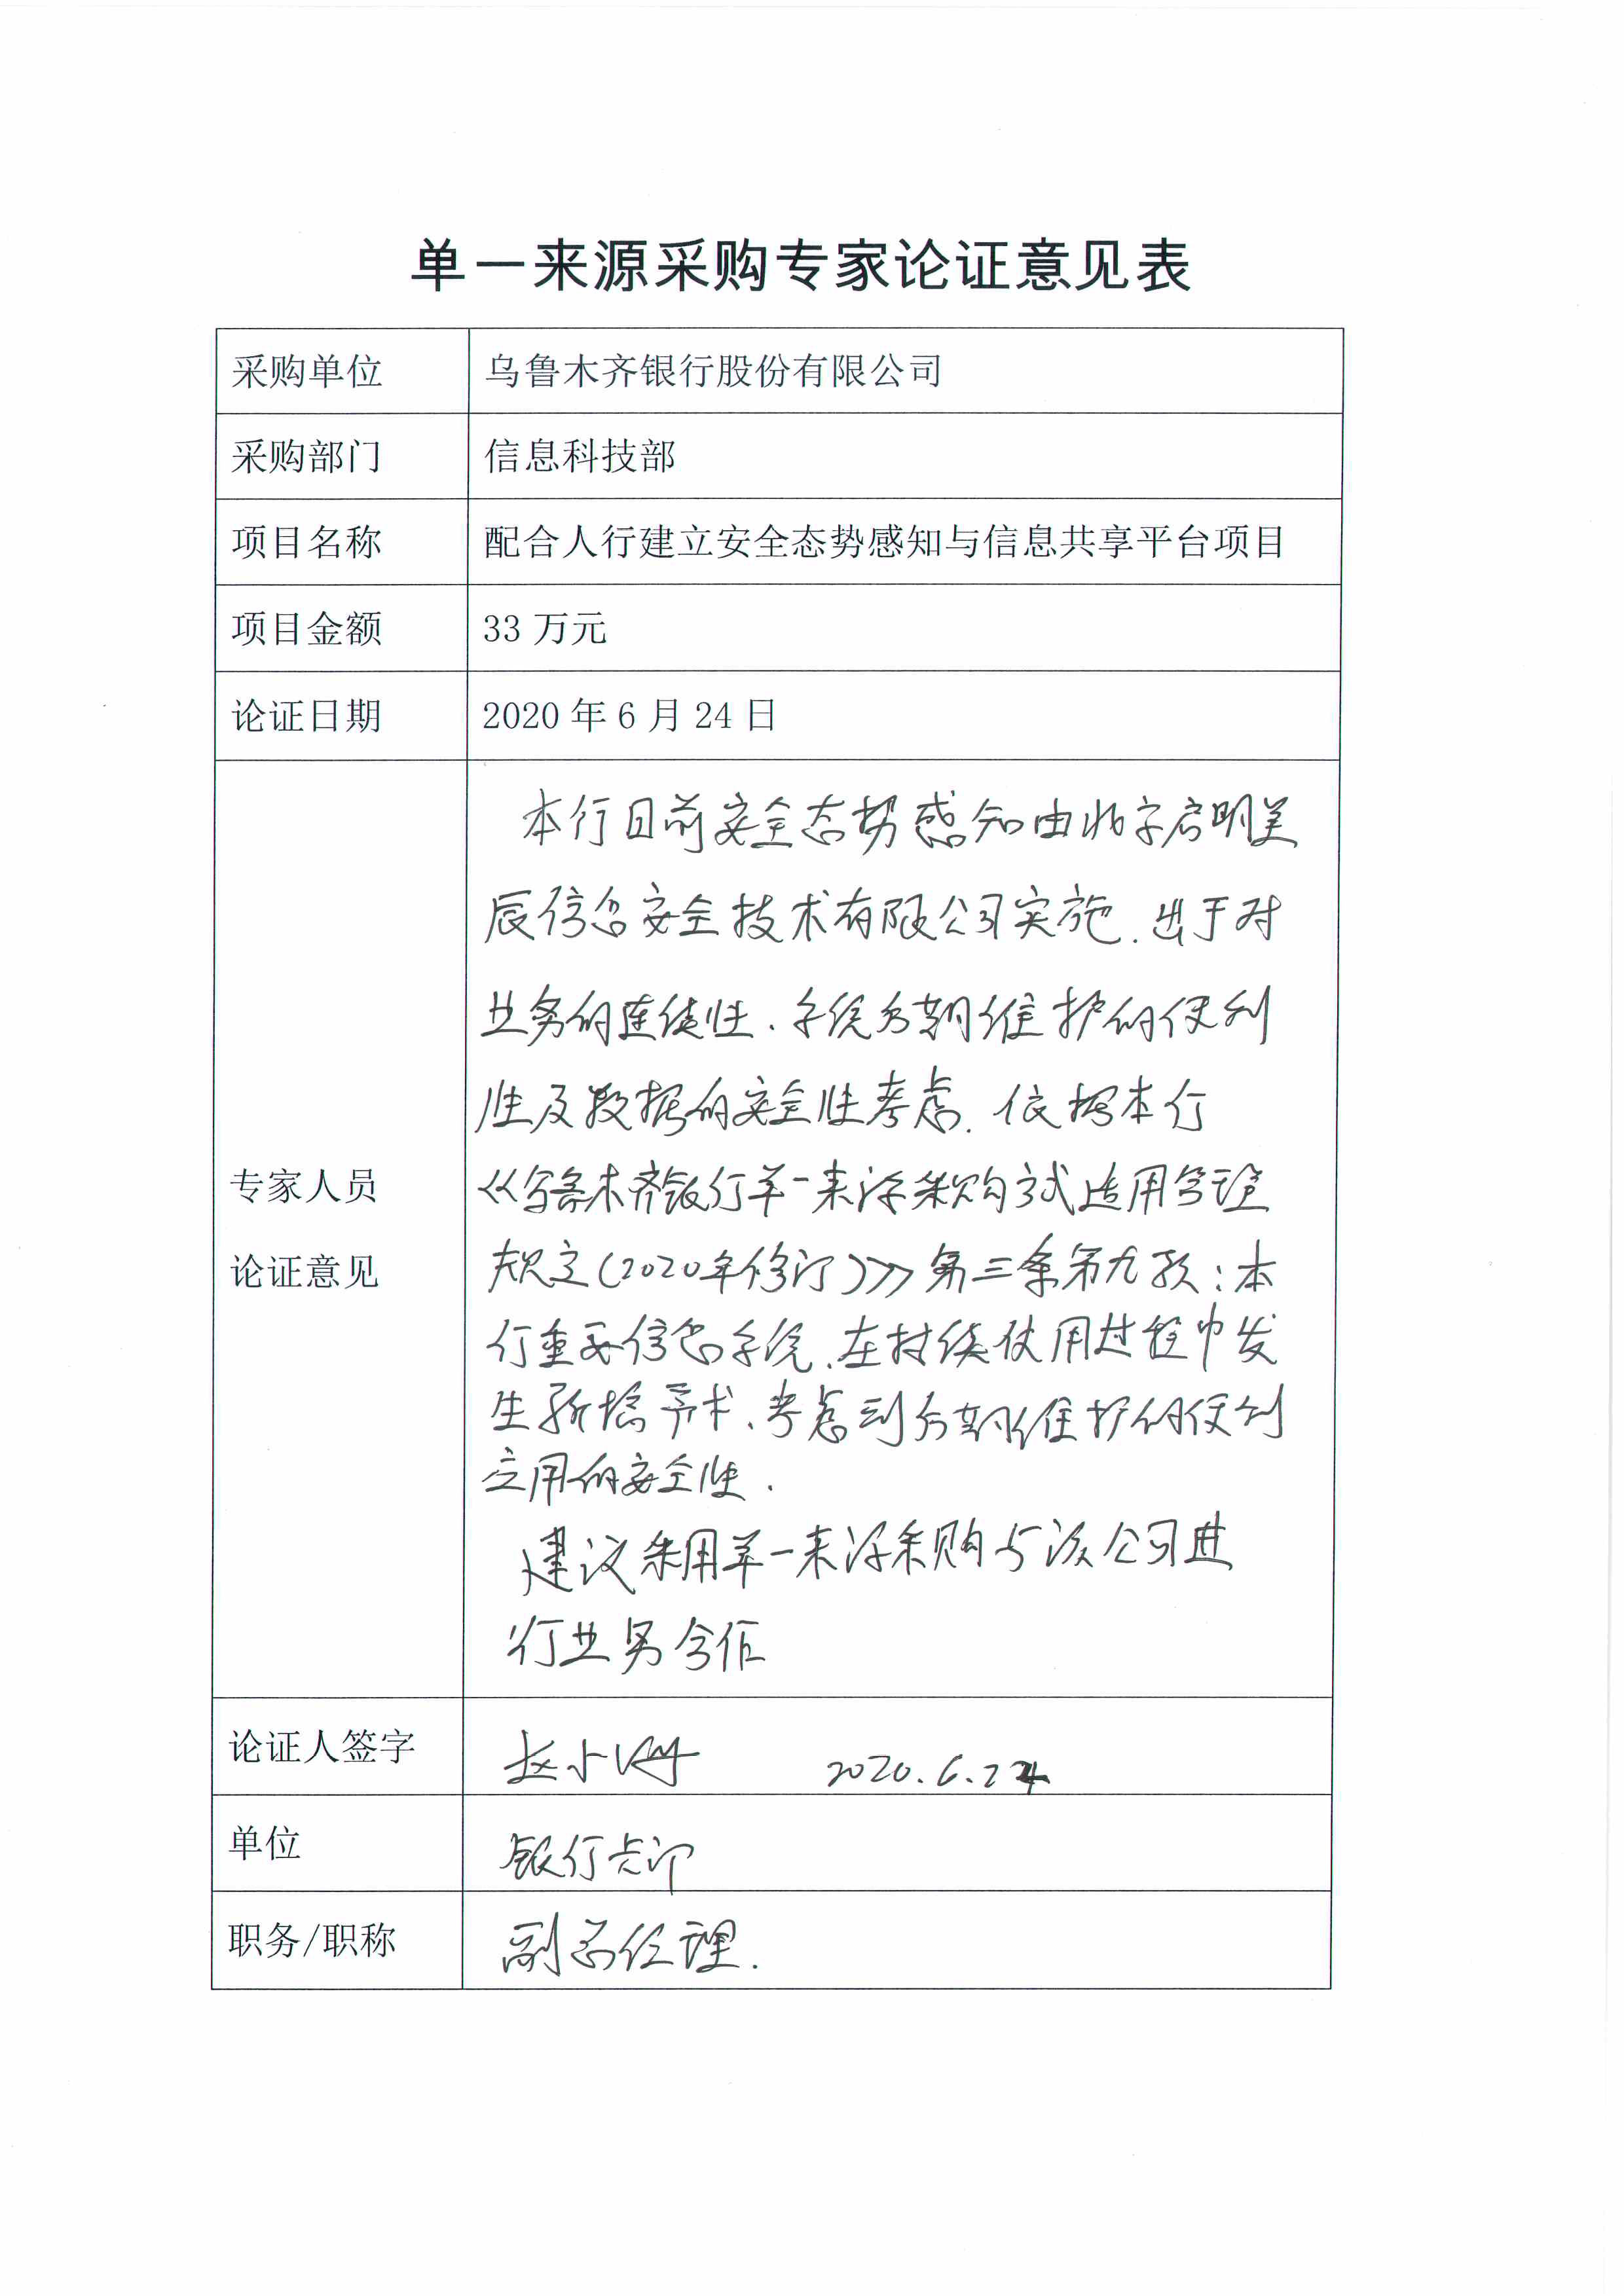 单一来源采购专家论证意见表
采购单位 乌鲁木齐银行股份有限公司
采购部门 信息科技部
项目名称 配合人行建立安全态势感知与信息共享平台项目
项目金额 33 万元
论证日期 2020 年 6 月 24 日
专家人员
论证意见
本行目前安全态势感知由北京启明星
辰信息安全技术有限公司实施.出于对
业务的连续性、系统后期维护的便利
性及数据的安全性考虑.依据本行
《乌鲁木齐银行单一来源采购方式适用管理
规定(2020年修订)》第三条第九款:本
行重要信息系统、在持续使用过程中发
生新增需求、考虑到后期维护的便利
应用的安全性.
建议采用单一来源采购与该公司进
行业务合作
论证人签字 赵小 2020.6.24
单位 银行卡部
职务/职称 副总经理.